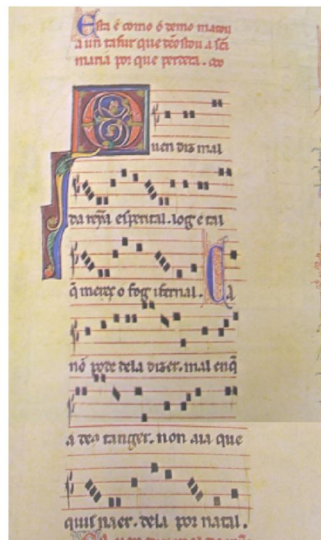 Esta é como o demo matou
a un tafur que deostou a sca
maria por que perdera.
Quen diz mal
da reyna esperital. log e tal
q̃ mereç o fog ifernal. Ca
nõ pode dela dizer. mal en q̃
a deo tanger. non aia que
quis naçer. dela por natal.